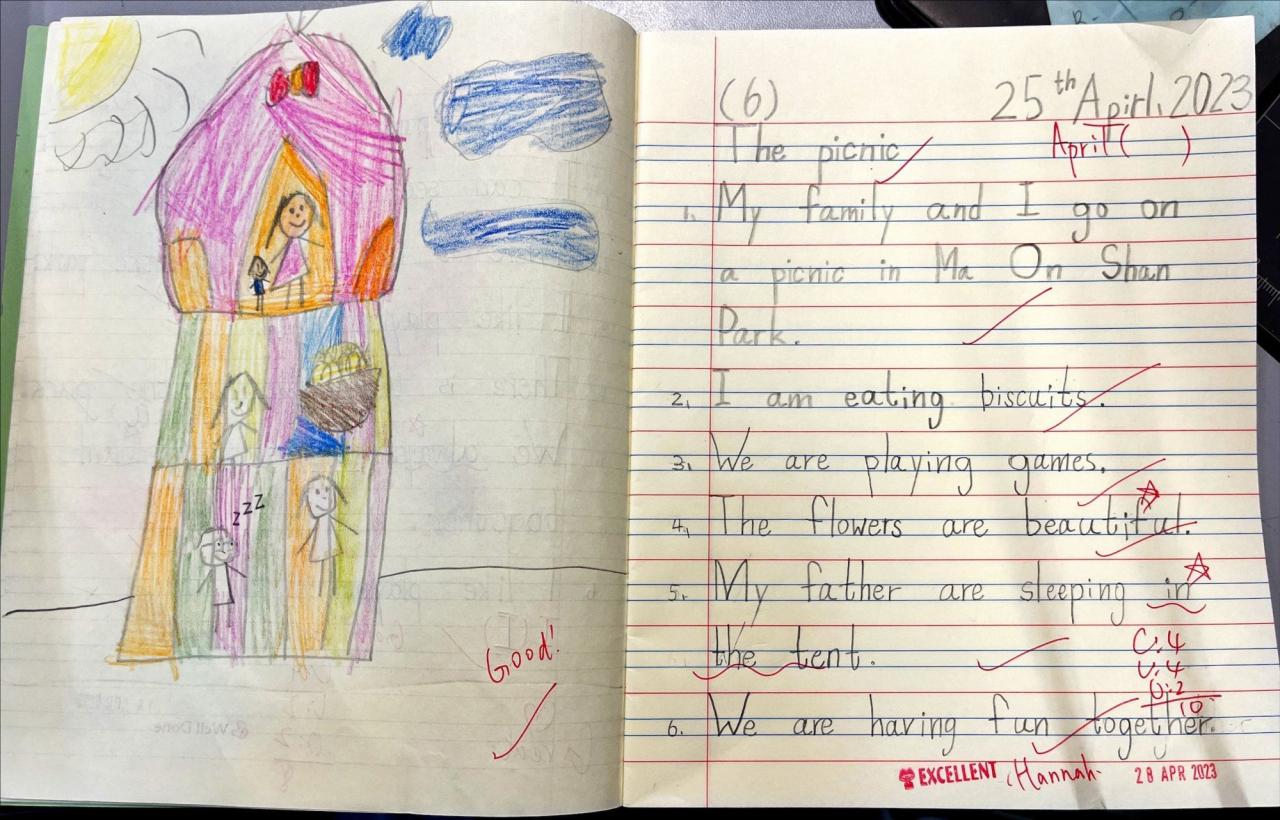 zzz
Good!
(6) 25th Apirl. 2023
The picnic April ( )
1. My family and I go on
a picnic in Ma On Shan
Park.
2. I am eating biscuits.
3. We are playing games.
4. The flowers are beautiful.
5. My father are sleeping in
the tent.
C:4
U:4
O:2
10
6. We are having fun together.
EXCELLENT Hannah 28 APR 2023
Well Done